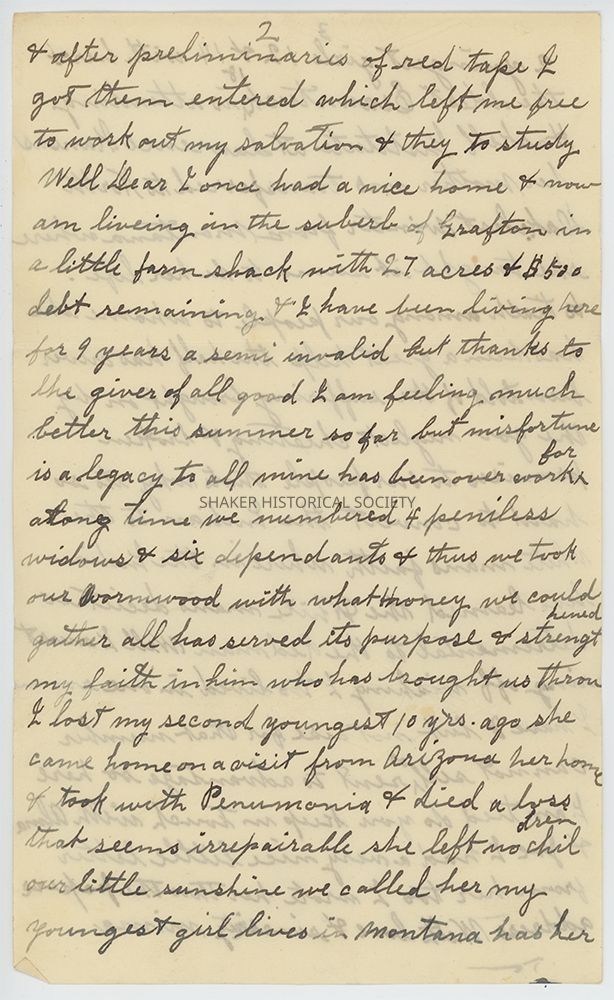 2
& after preliminaries of red tape I
got them entered which left me free
to work out my salvation & they to study
Well Dear I once had a nice home & now
am liveing in the suberb of Grafton in
a little farm shack with 27 acres & $500
debt remaining & I have been living here
for 9 years a semi invalid but thanks to
the giver of all good I am feeling much
better this summer so far but misfortune
is a legacy to all mine has been over work for
SHAKER HISTORICAL SOCIETY
along time we numbered 4 peniless
widows & six dependants & thus we took
our Wormwood with what money we could
gather all has served its purpose & strengthened
my faith in him who has brought us throu
I lost my second youngest 10 yrs. ago she
came home on a visit from Arizona her home
& took with Penumonia & died a loss
that seems irrepairable she left no children
our little sunshine we called her my
youngest girl lives in Montana has her